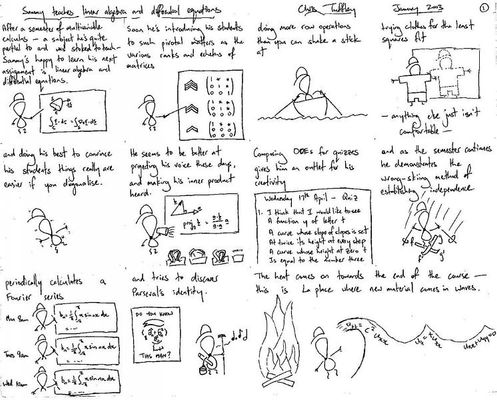 Sammy teaches linear algebra and differential equations
Chris Tuffley
January 2003
1
After a semester of multivariable
calculus – a subject he's quite
partial to and
Sammy's happy to learn his next
assignment is linear algebra and
differential equations.
Soon he's introducing his students
to such pivotal matters as the
various ranks and echelons of
matrices
doing more row operations
than you can shake a stick
at
trying clothes for the least
squares fit
– anything else just isn't
comfortable –
and doing his best to convince
his students things really are
easier if you diagonalise.
He seems to be better at
projecting his voice these days,
and making his inner product
heard.
Composing ODEs for quizzes
gives him an outlet for his
creativity
Wednesday 17th April – Quiz
1. I think that I would like to see
A function y of letter t
A curve whose slope of slopes is set
At twice its height at every step
A curve whose height at zero t
Is equal to the number three
and as the semester continues
he demonstrates the
wronsking method of
establishing independence
periodically calculates a
Fourier series
Mon 9am
Tues 9am
Wed 10am
and tries to discover
Parseval's identity.
DO YOU KNOW
THIS MAN?
The heat comes on towards the end of the course —
this is La place where new material comes in waves.